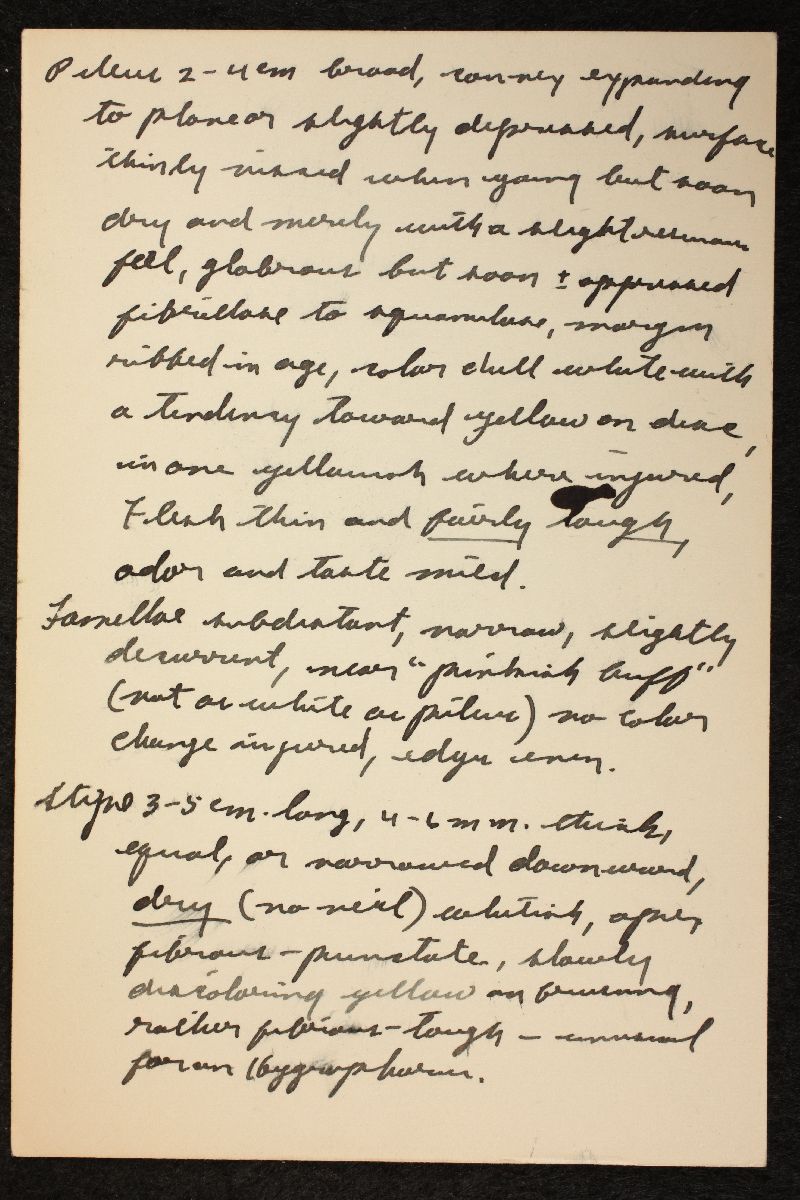 Pileus 2-4 cm broad, convex expanding
to plane or slightly depressed, surface
thinly viscid when young but soon
dry and merely with a slight resinous
feel, glabrous but soon ± appressed
fibrillose to squamulose, margin
ribbed in age, color dull white with
a tendency toward yellow on disc,
in one yellowish where injured,
Flesh thin and fairly tough,
odor and taste mild.
Lamellae subdistant, narrow, slightly
decurrent, near "pinkish buff"
(not as white as pileus) no color
change injured, edges even.
Stipe 3-5 cm. long, 4-6 mm. thick,
equal, or narrowed downward,
dry (no veil) whitish, apex
fibrous-punctate, slowly
discoloring yellow on bruising,
rather fibrous-tough - unusual
for an Hygrophorus.